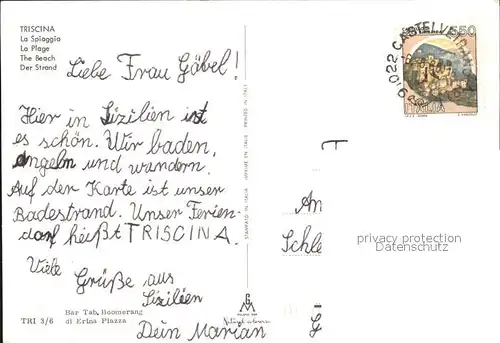 TRISCINA
La Spiaggia
La Plage
The Beach
Der Strand
550
91022 CASTELVETRANO
ITALIA
Liebe Frau Gäbel!
Hier in Sizilien ist
es schön. Wir baden,
angeln und wandern.
Auf der Karte ist unser
Badestrand. Unser Ferien-
dorf heißt TRISCINA.
Viele
Grüße aus
Sizilien
Dein Marian
STAMPATO IN ITALIA IMPRIMÉ EN ITALIE PRINTED IN ITALY
An
Schle
privacy protection
Datenschutz
TRI 3/6
Bar Tab. Boomerang
di Erina Piazza